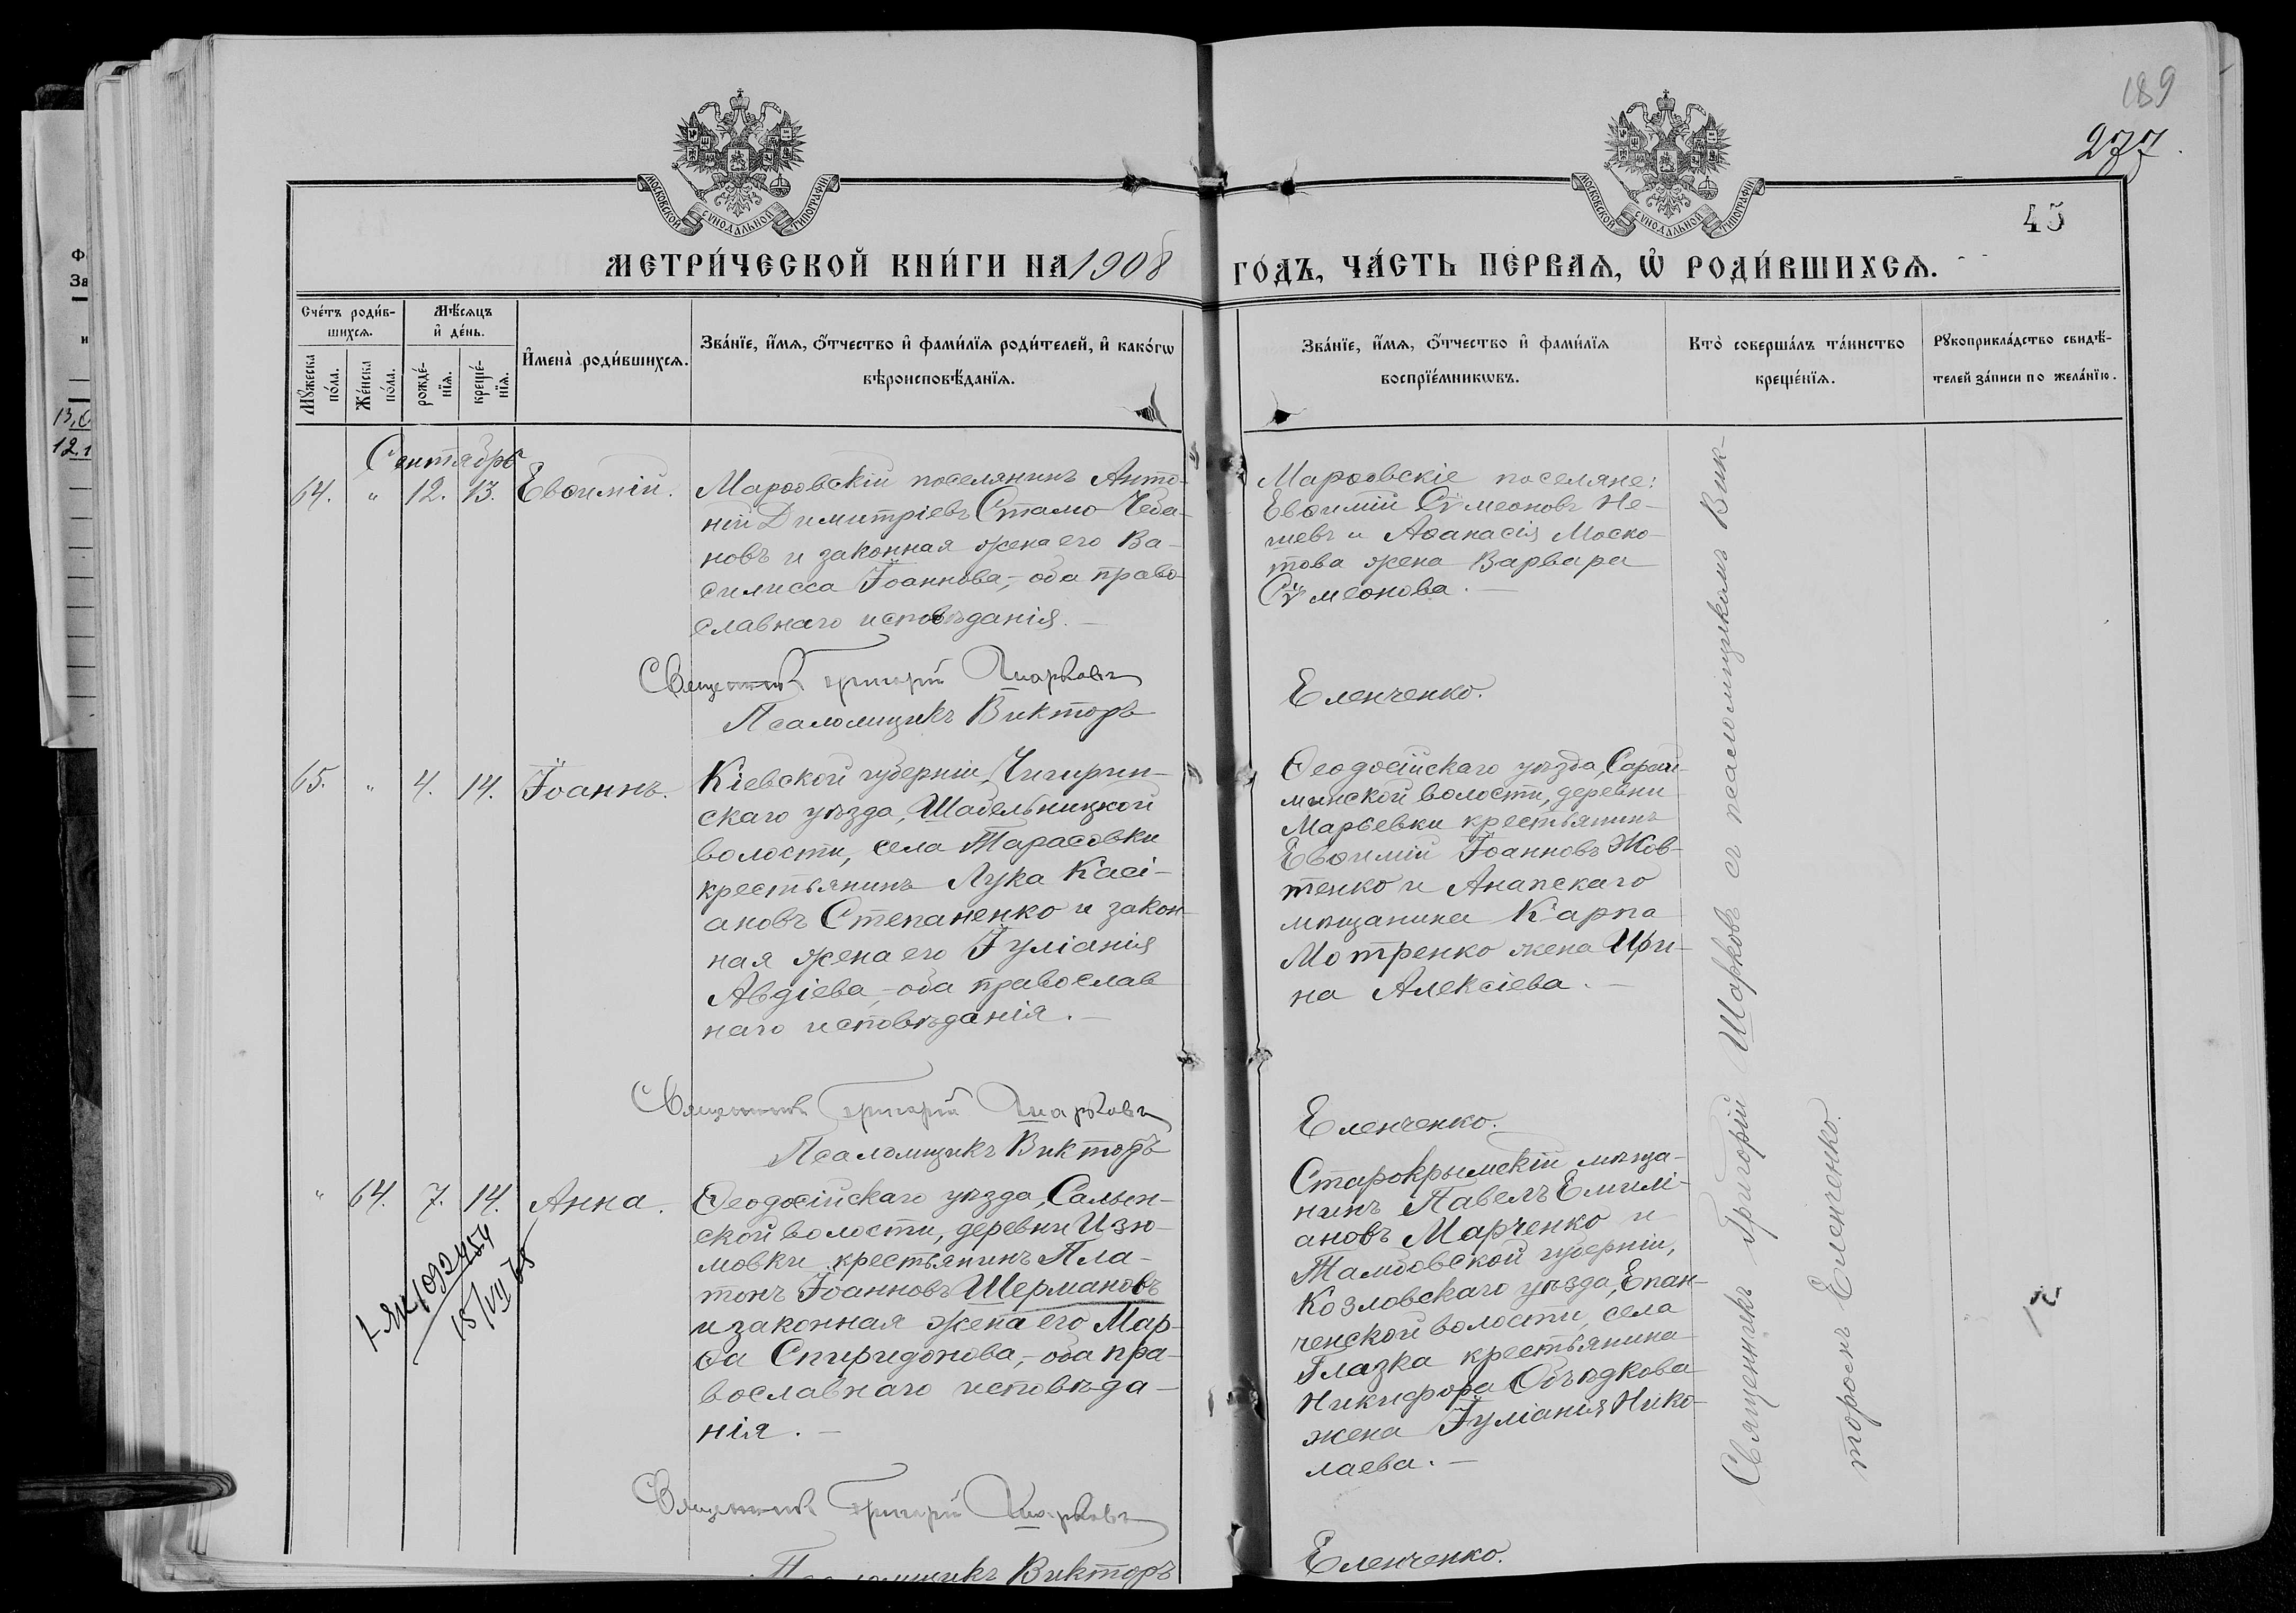 189
277
45
МОСКОВСКОЙ СИНОДАЛЬНОЙ ТИПОГРАФІИ
МОСКОВСКОЙ СИНОДАЛЬНОЙ ТИПОГРАФІИ
МЕТРИ́ЧЕСКОЙ КНИ́ГИ НА 1908 ГО́ДЪ, ЧА́СТЬ ПЕ́РВАѦ, Ѡ҆ РОДИ́ВШИХСѦ.
Сче́тъ роди́в-
шихсѧ.
Мѣ́сѧцъ
и҆ де́нь.
Мꙋ́жеска
по́ла.
Же́нска
по́ла.
рожде́-
нїѧ.
креще́-
нїѧ.
И҆мена̀ роди́вшихсѧ.
Зва́нїе, и҆́мѧ, ѻ҆́тчество и҆ фами́лїѧ роди́телей, и҆ како́гѡ
вѣроисповѣ́данїѧ.
Зва́нїе, и҆́мѧ, ѻ҆́тчество и҆ фами́лїѧ
воспрїе́мникѡвъ.
Кто̀ соверша́лъ та́инство
креще́нїѧ.
Рꙋкоприкла́дство свидѣ́-
телей за́писи по жела́нїю.
Сентябрь
64. " 12. 13. Евѳимій.
Марѳовскій поселянинъ Анто-
ній Димитріевъ Стамо-Чеба-
новъ и законная жена его Ва-
силисса Іоаннова, - оба право-
славнаго исповѣданія. —
Священникъ Григорій Шарковъ
Псаломщикъ Викторъ
Марѳовскіе поселяне:
Евѳимій Сѵмеоновъ Не-
шевъ и Аѳанасія Моско-
това жена Варвара
Сѵмеонова. —
Еленченко.
65. " 4. 14. Іоаннъ.
Кіевской губерніи, Чигирин-
скаго уѣзда, Шабельницкой
волости, села Тарасовки
крестьянинъ Лука Касі-
ановъ Степаненко и закон-
ная жена его Іуліанія
Авдіева, - оба православ
наго исповѣданія. —
Священникъ Григорій Шарковъ
Псаломщикъ Викторъ
Ѳеодосійскаго уѣзда, Сарай-
минской волости, деревни
Марьевки крестьянинъ
Евѳимій Іоанновъ Жов-
тенко и Анапскаго
мѣщанина Карпа
Мотренко жена Ири-
на Алексіева. —
Еленченко.
" 64. 7. 14. Анна.
1-ЯК/092454
15/VII 68
Ѳеодосійскаго уѣзда, Салын-
ской волости, деревни Изю-
мовки крестьянинъ Пла-
тонъ Іоанновъ Шермановъ
и законная жена его Мар-
ѳа Спиридонова, - оба пра-
вославнаго исповѣда-
нія. —
Священникъ Григорій Шарковъ
Псаломщикъ Викторъ
Старокрымскій мѣща-
нинъ Павелъ Емилі-
ановъ Марченко и
Тамбовской губерніи,
Козловскаго уѣзда, Епан-
ченской волости, села
Глазка крестьянина
Никифора Объѣдкова
жена Іуліанія Нико-
лаева. —
Еленченко.
Священникъ Григорій Шарковъ съ псаломщикомъ Вик-
торомъ Еленченко.